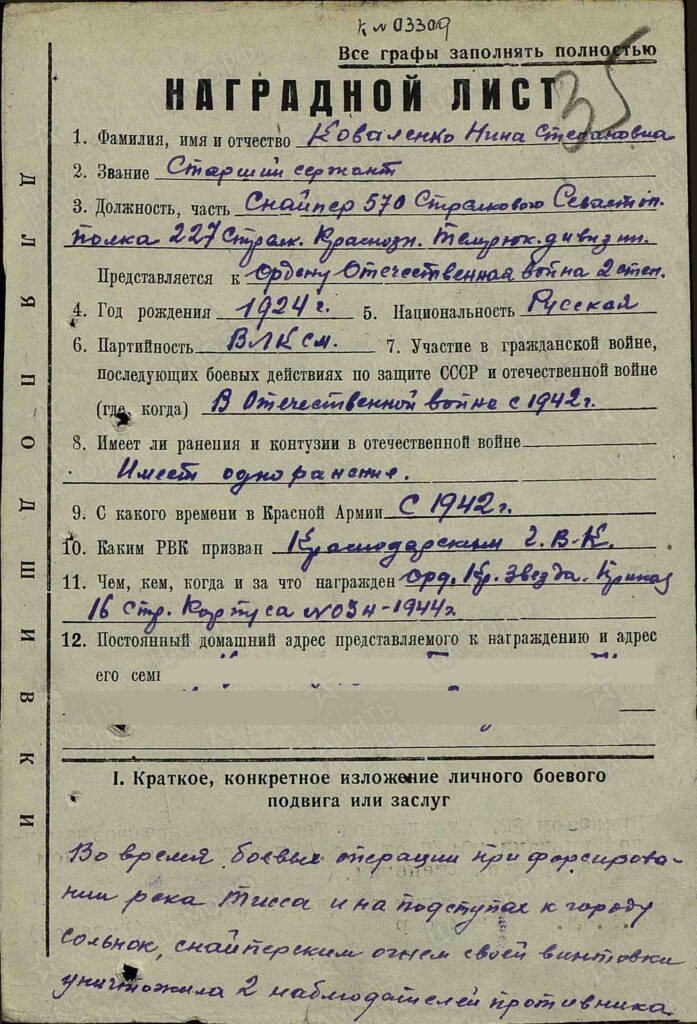 К № 03309
Все графы заполнять полностью
35
НАГРАДНОЙ ЛИСТ
1. Фамилия, имя и отчество Коваленко Нина Степановна
2. Звание Старший сержант
3. Должность, часть Снайпер 570 Стрелкового Севастоп.
полка 227 Стрелк. Краснозн. Темрюк. дивизии.
Представляется к Ордену Отечественная война 2 степ.
4. Год рождения 1924 г. 5. Национальность Русская
6. Партийность ВЛКСМ. 7. Участие в гражданской войне,
последующих боевых действиях по защите СССР и отечественной войне
(где, когда) В Отечественной войне с 1942 г.
8. Имеет ли ранения и контузии в отечественной войне
Имеет одно ранение.
9. С какого времени в Красной Армии С 1942 г.
10. Каким РВК призван Краснодарским Г.В.К.
11. Чем, кем, когда и за что награжден орд. Кр. Звезда. Приказ
16 Стр. Корпуса № 03н-1944 г.
12. Постоянный домашний адрес представляемого к награждению и адрес
его
I. Краткое, конкретное изложение личного боевого
подвига или заслуг
Во время боевых операции при форсирова-
нии река Тисса и на подступах к городу
Сольнок, снайперским огнем своей винтовки
уничтожила 2 наблюдателей противника
ДЛЯ ПОДШИВКИ